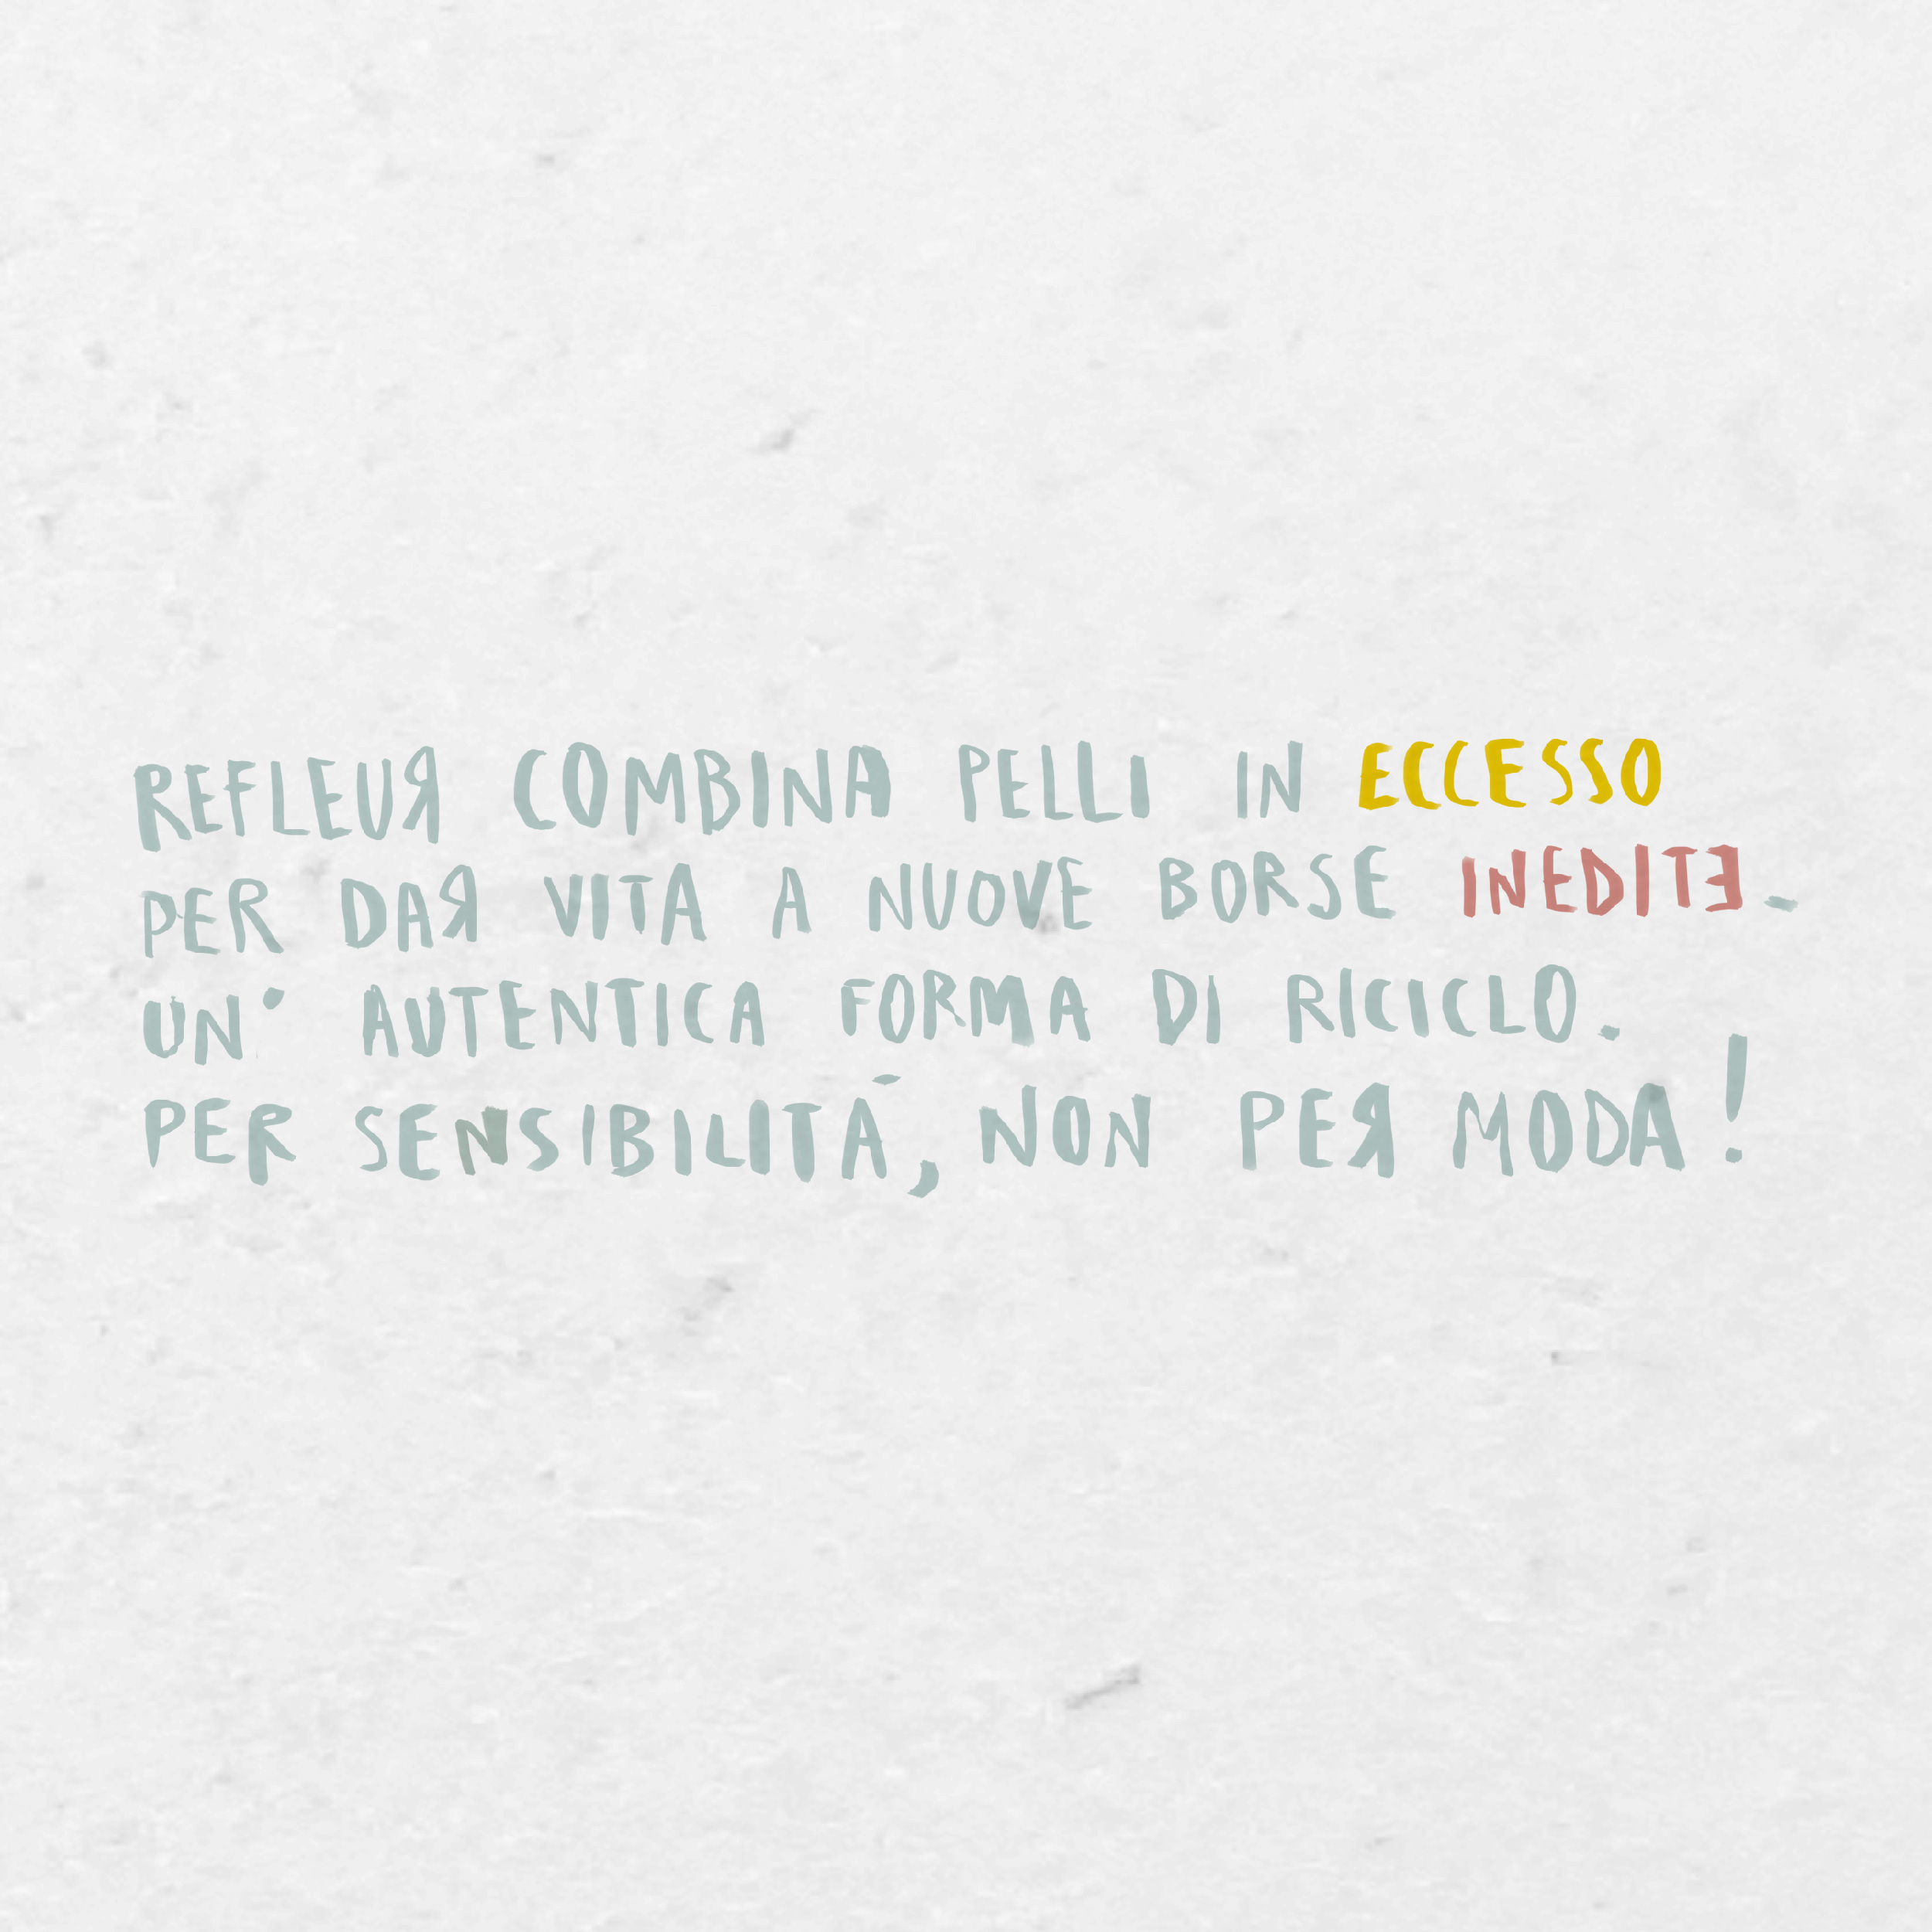 REFLEUR COMBINA PELLI IN ECCESSO
PER DAR VITA A NUOVE BORSE INEDITE-
UN' AUTENTICA FORMA DI RICICLO.
PER SENSIBILITÁ, NON PER MODA!